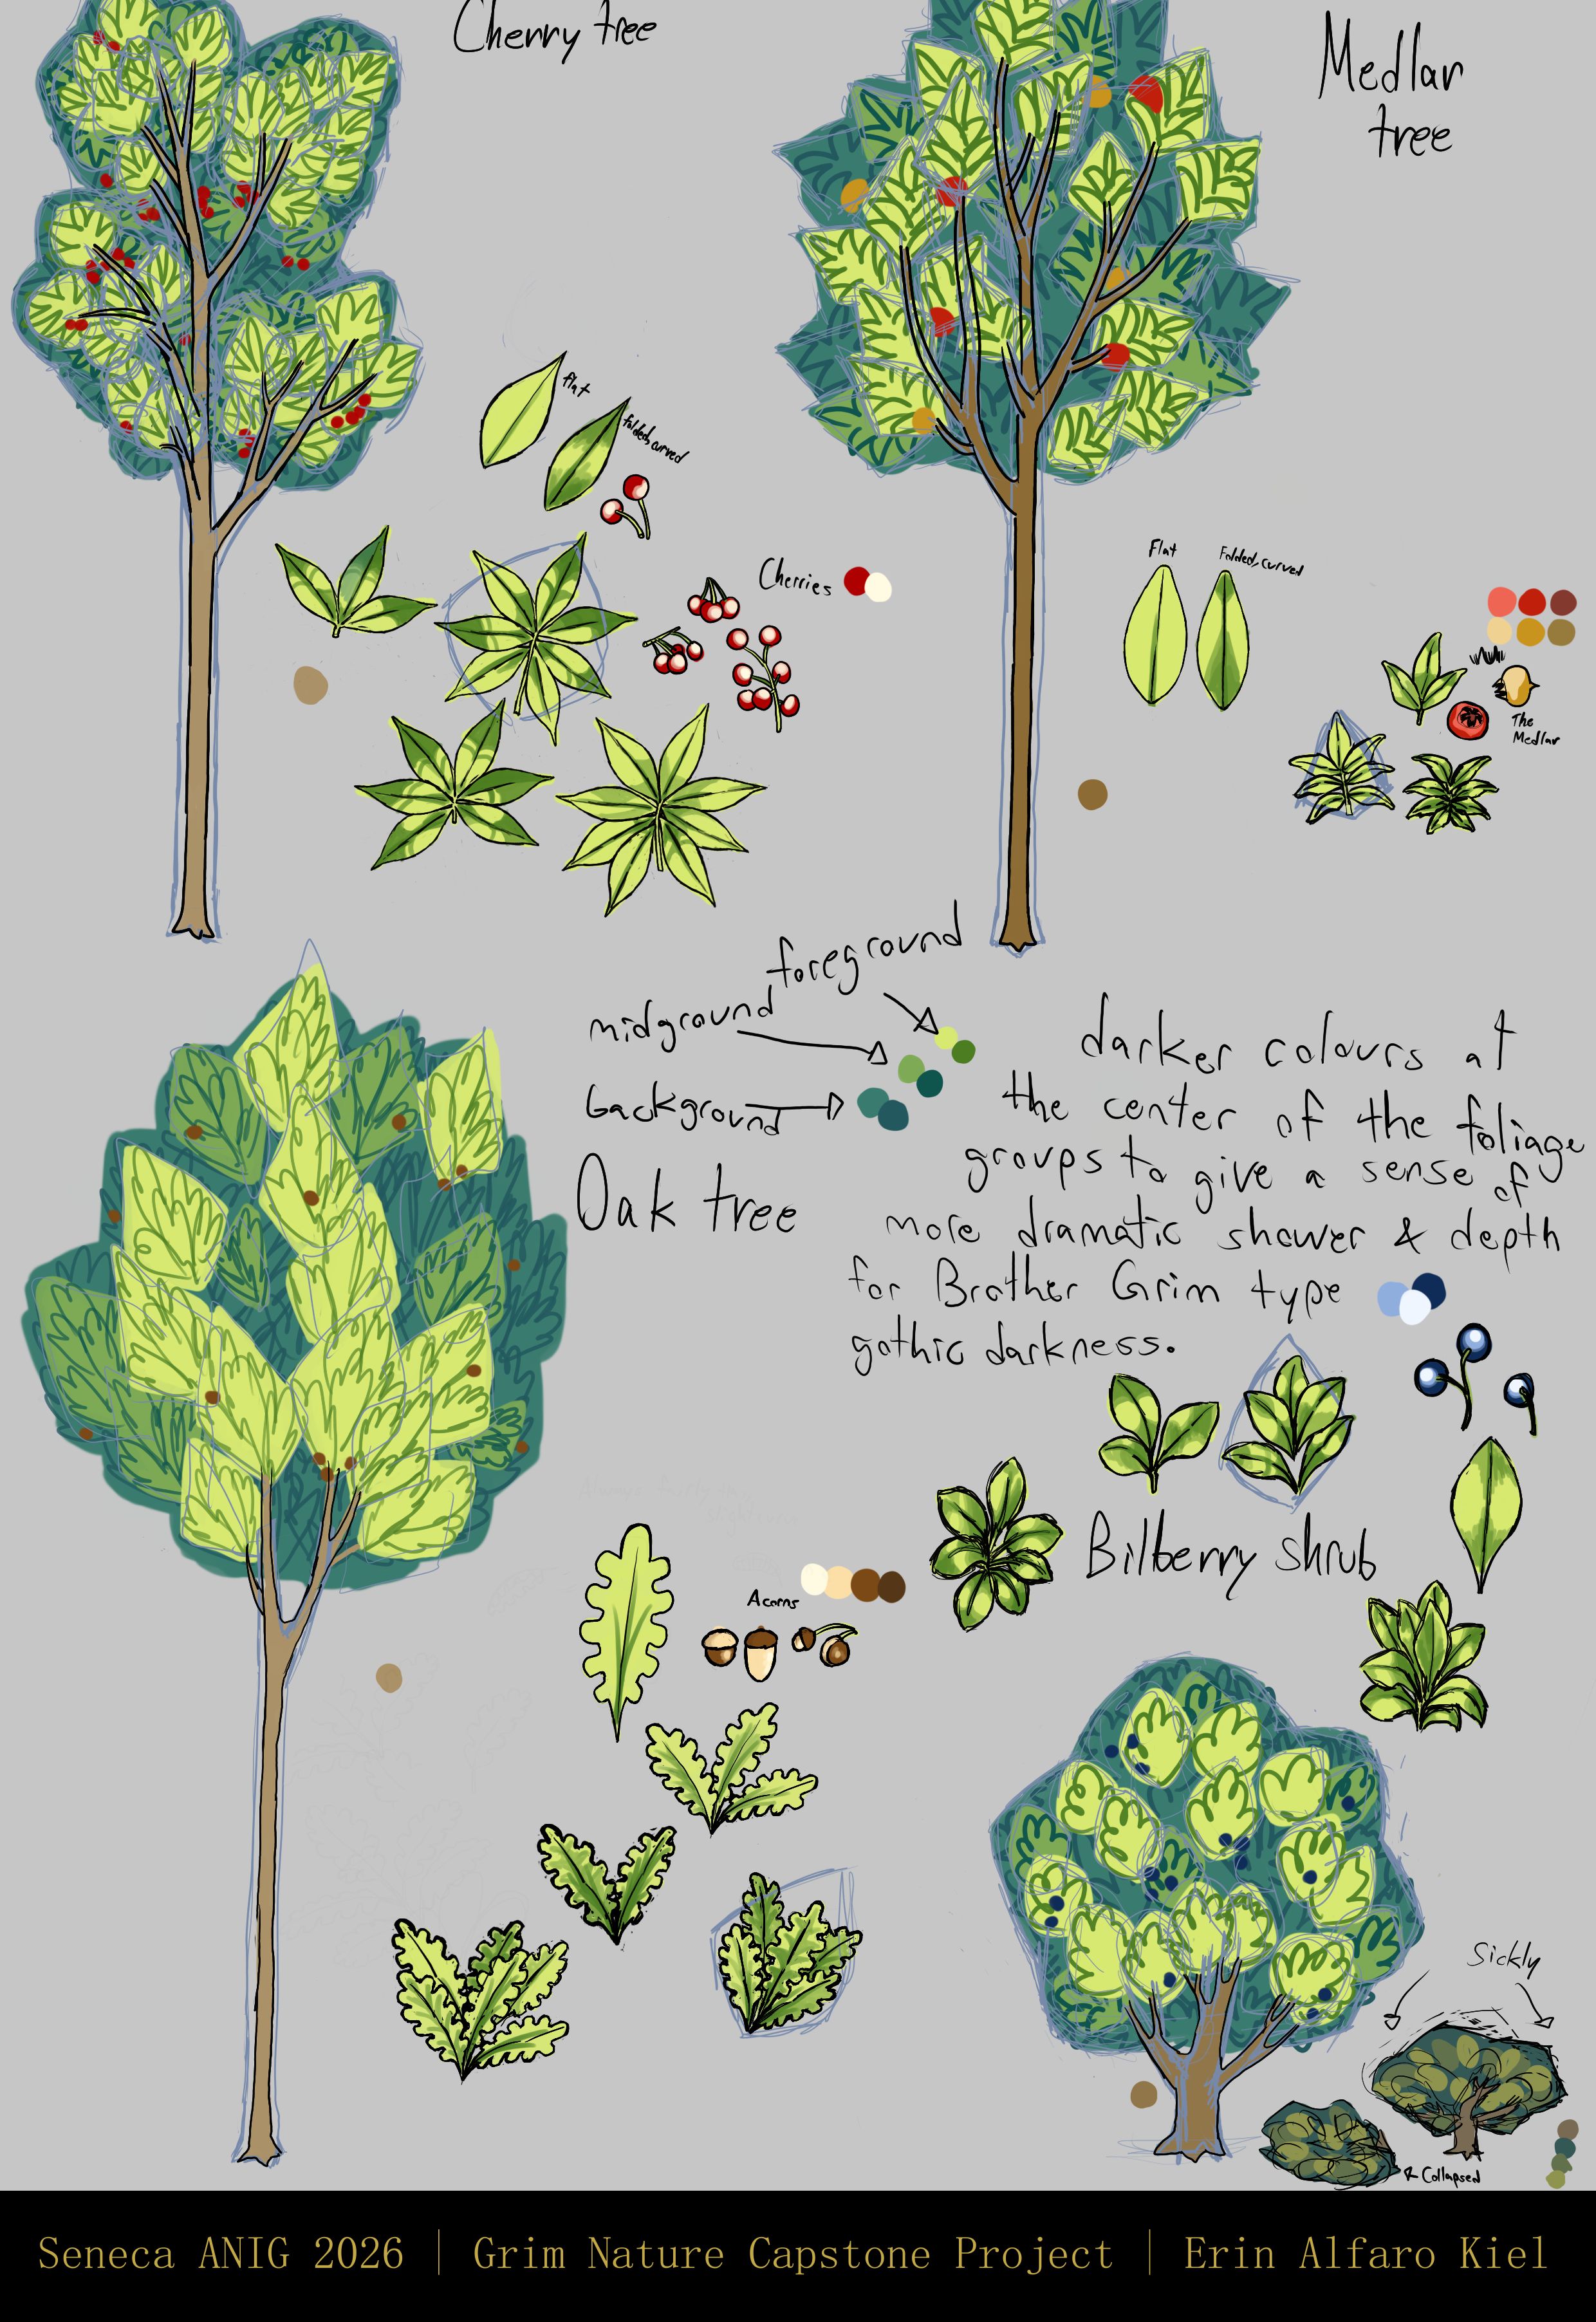 Cherry tree
Medlar
tree
flat
folded, curved
Cherries
Flat
Folded, curved
The
Medlar
foreground
midground
background
Oak tree
darker colours at
the center of the foliage
groups to give a sense of
more dramatic shower & depth
for Brother Grim type
gothic darkness.
Bilberry shrub
Acorns
Sickly
Collapsed
Seneca ANIG 2026 | Grim Nature Capstone Project | Erin Alfaro Kiel